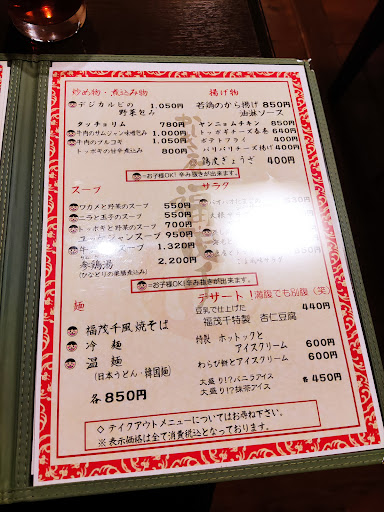 炒め物・煮込み物
デジカルビの 1.050円
野菜包み
タッチョリム 780円
牛肉のサムジャン味噌包み 1.000円
牛肉のプルコギ 1.050円
トッポギの甘辛煮込み
=お子様OK!辛み抜きが出来ます。
スープ
ワカメと野菜のスープ 550円
ニラと玉子のスープ 550円
トッポギと野菜のスープ 700円
ユッケジャンスープ 950円
1,320円
参鶏湯 2,200円
(ひなどりの薬膳煮込み)
麺
福茂千風焼そば
冷麺
温麺
(日本うどん・韓国麺)
各850円
揚げ物
若鶏のから揚げ 850円
油淋ソース
ヤンニョムチキン 850円
トッポギチーズ春巻 640円
ポテトフライ 400円
パリパリチーズ揚げ 400円
鶏皮ぎょうざ 400円
サラダ
=お子様OK!辛み抜きが出来ます。
デザート!満腹でも別腹(笑)
豆乳で仕上げた 440円
福茂千特製 杏仁豆腐
特製 ホットックと
アイスクリーム 600円
わらび餅とアイスクリーム 600円
大盛り!?バニラアイス 各450円
大盛り!?抹茶アイス
◇テイクアウトメニューについてはお尋ね下さい。
※表示価格は全て消費税込となっております。